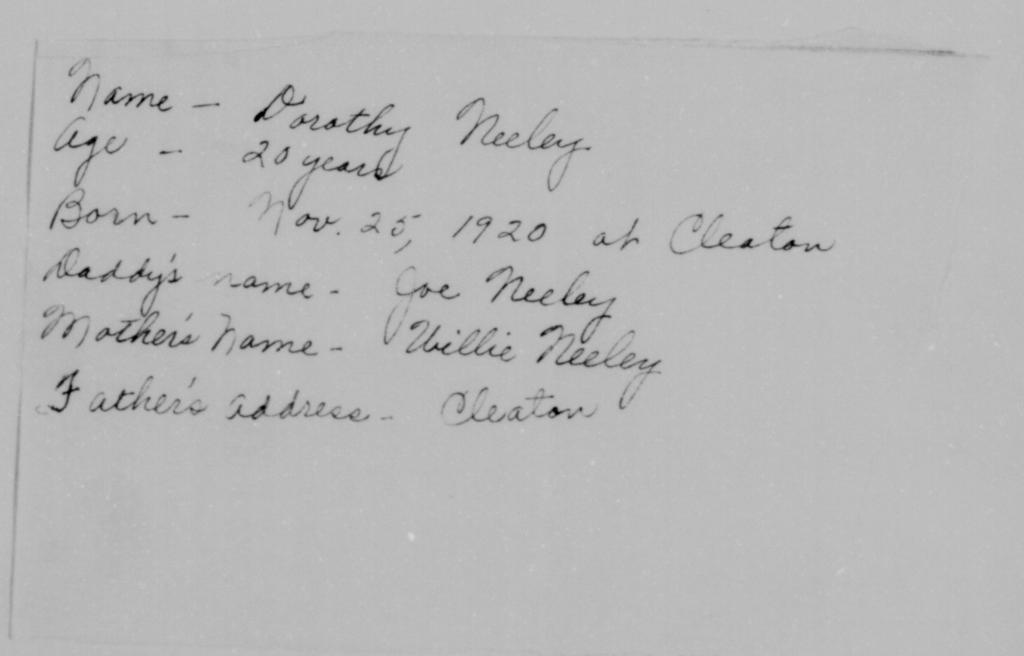 Name - Dorothy Neeley
Age - 20 years
Born - Nov. 25, 1920 at Cleaton
Daddy's name - Joe Neeley
Mother's Name - Willie Neeley
Father's address - Cleaton